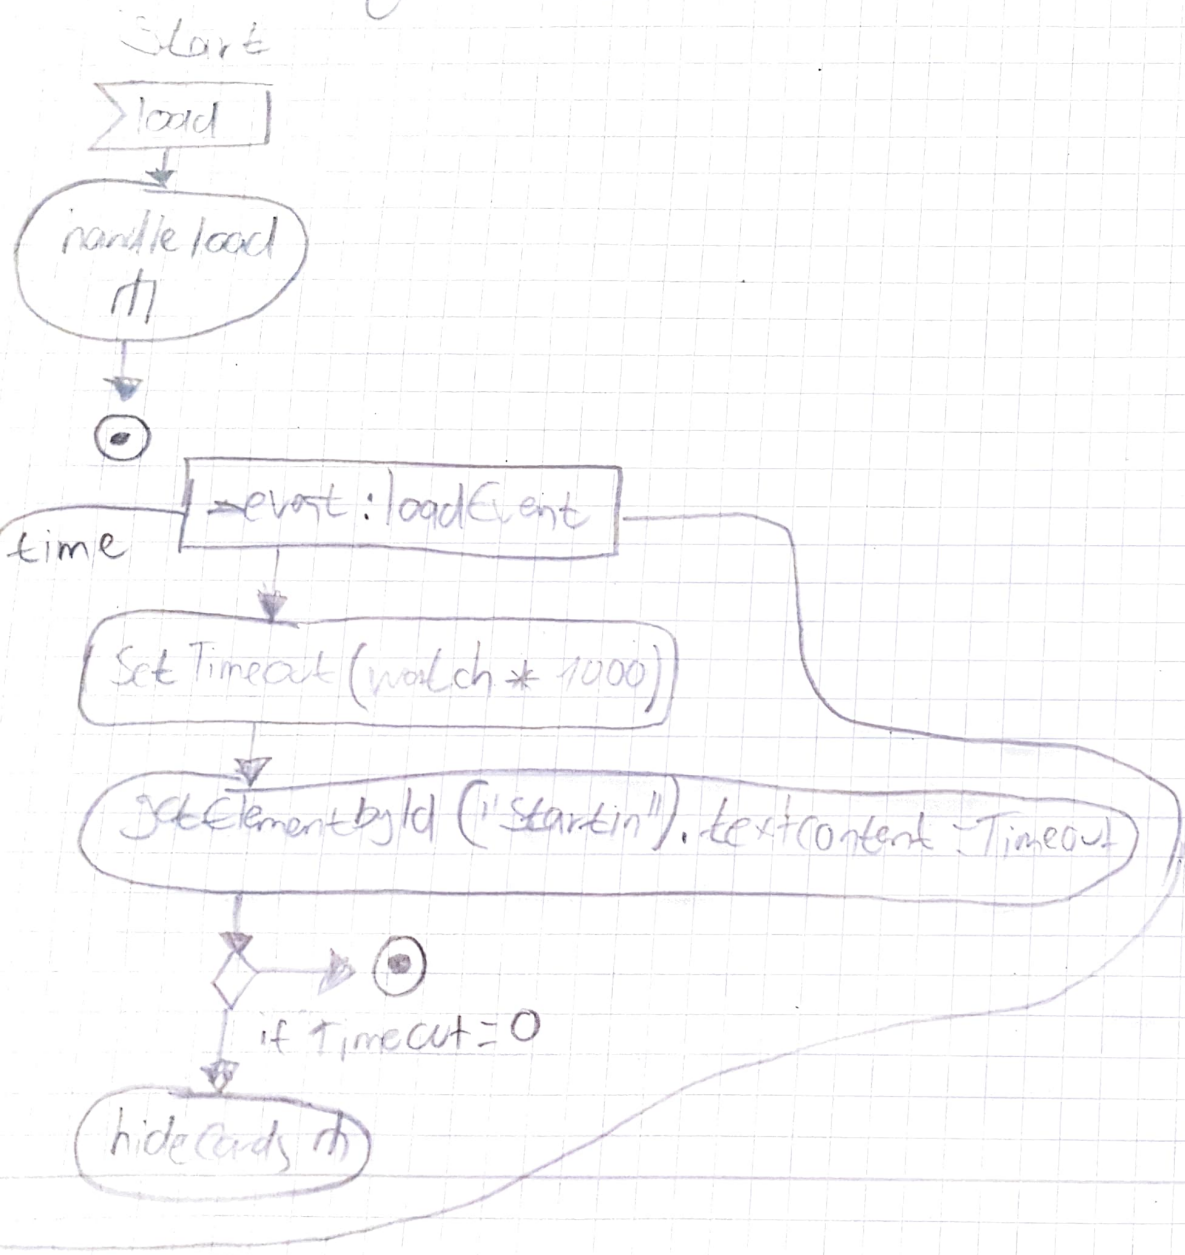 Start
load
handleload
_event:loadEvent
time
SetTimeout(watch * 1000)
getElementbyId ("Startin").textcontent = Timeout
if Timeout = 0
hideCards